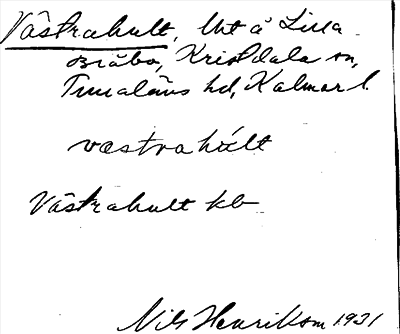 Västrahult, Utt å Lilla
Bråbo, Kristdala sn,
Tunaläns hd, Kalmar l.
væstrahúlt
Västrahult kb
Nils Henriksson 1931